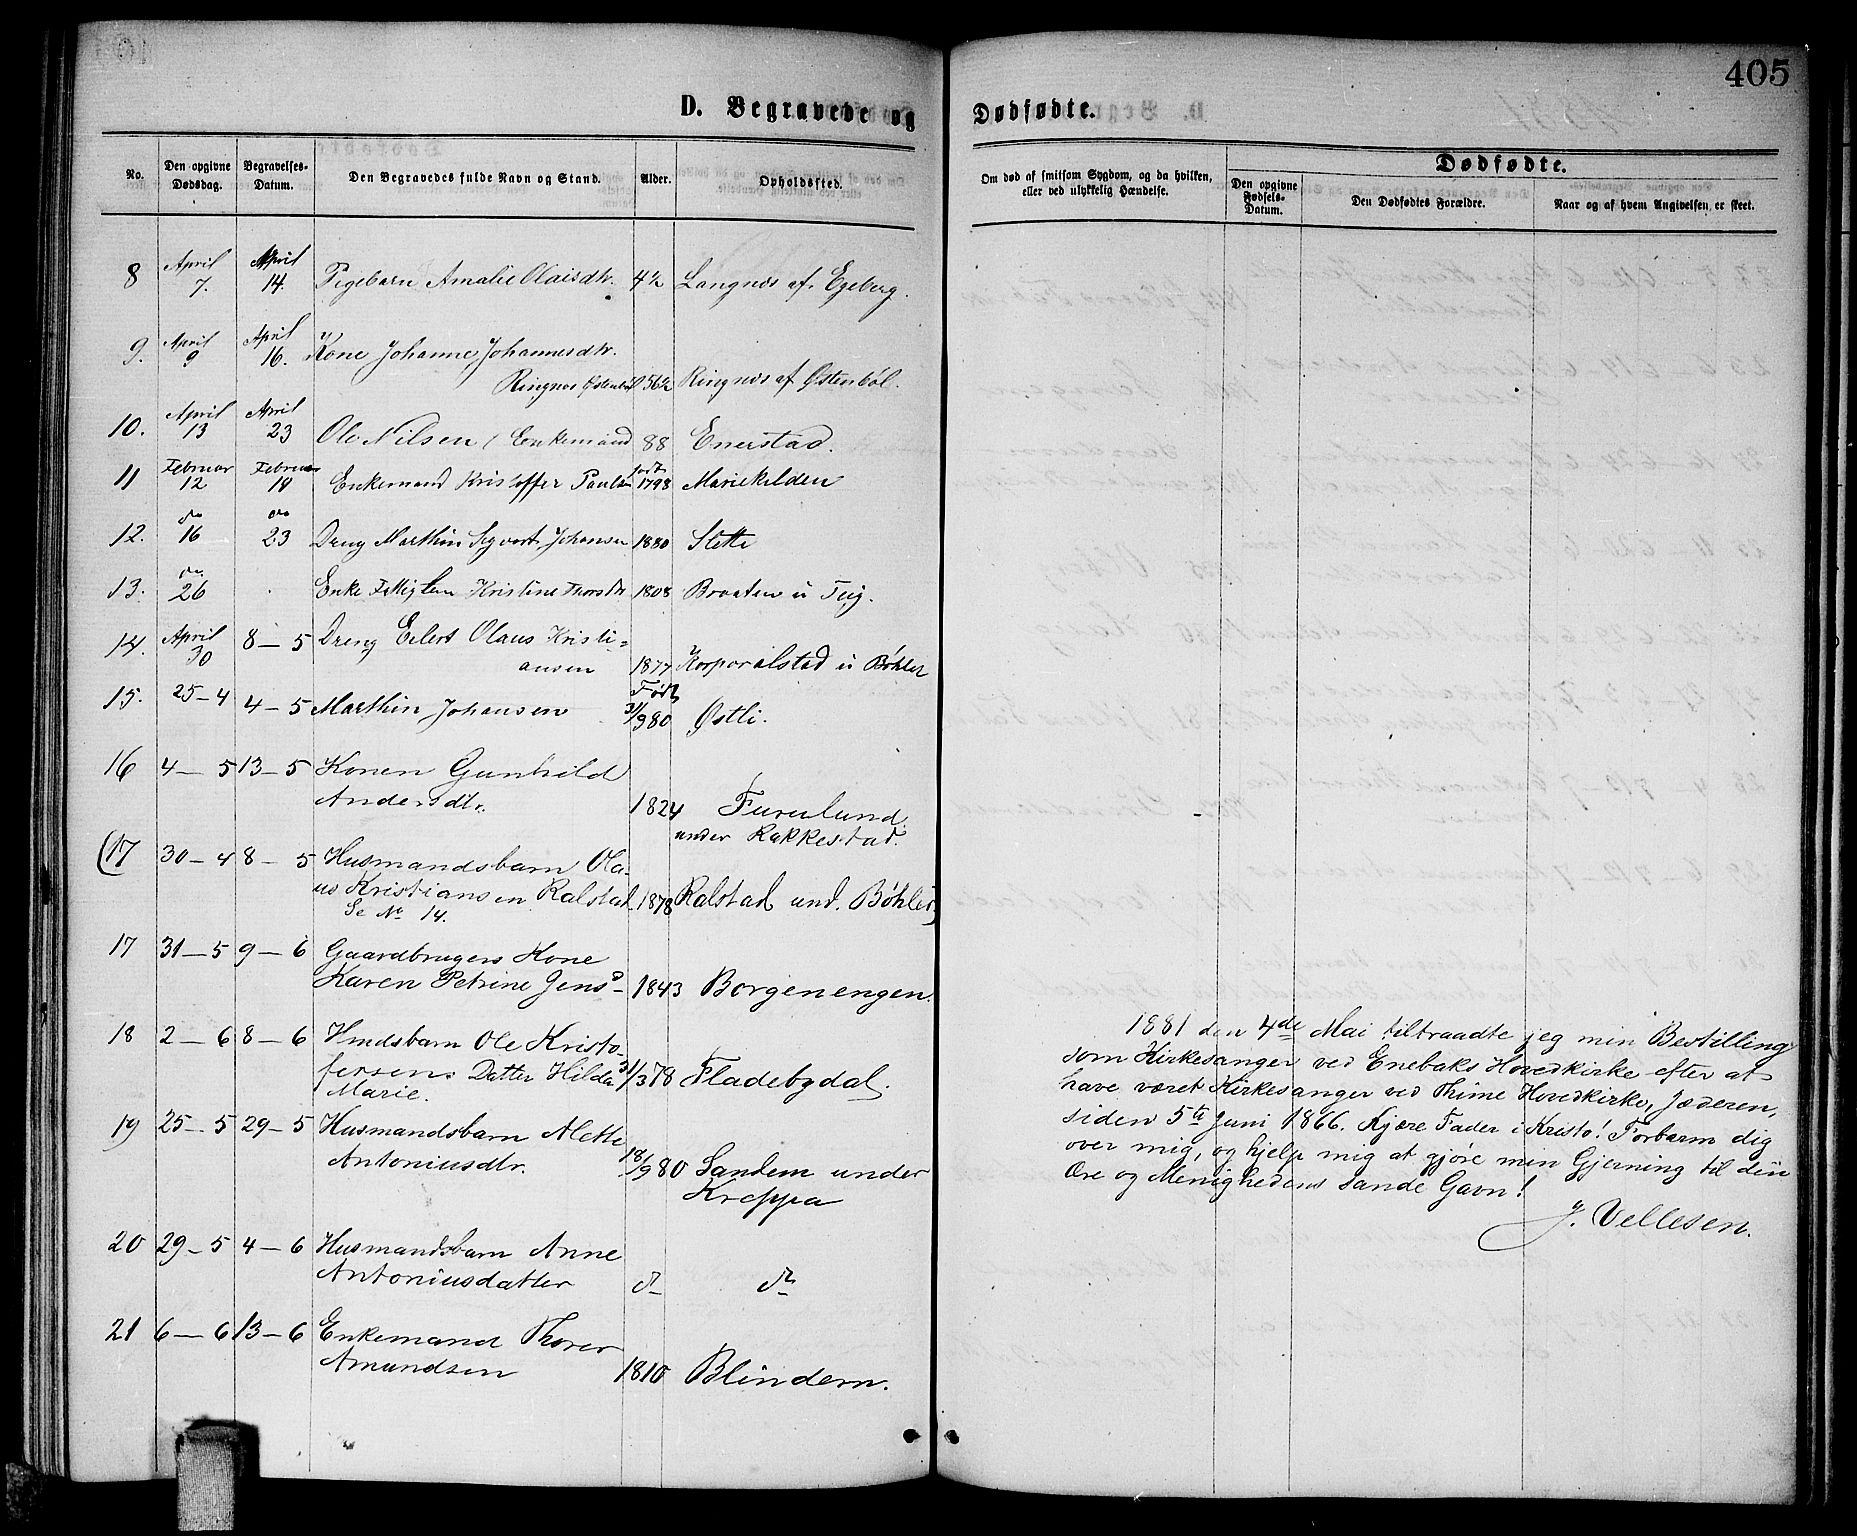 405
D. Begravede og Dødfødte.
No.
Den opgivne Dødsdag.
Begravelses-Datum.
Den Begravedes fulde Navn og Stand.
Alder.
Opholdssted.
Om død af smitsom Sygdom, og da hvilken, eller ved ulykkelig Hændelse.
Dødfødte.
Den opgivne Fødsels-Datum.
Den Dødfødtes Forældre.
Naar og af hvem Angivelsen er skeet.
8 April 7. April 14. Pigebarn Amalie Olaisdtr. 4½ Langnes af Egeberg.
9. April 9 April 16. Kone Johanne Johannesdtr.
Ringnes Østenbøl 56½ Ringnes af Østenbøl.
10. April 13 April 23 Ole Nilsen, Enkemand 88 Enerstad.
11 Februar 12 Februar 19 Enkemand Kristoffer Paulsen født 1798 Mariekilden
12. do 16 do 23 Dreng Marthin Sigvart Johansen 1880 Slette
13. do 26 Enke Fattiglem Kristine Thorsdtr 1808 Braaten u Teig.
14. April 30 8–5 Dreng Eilert Olaus Kristi-
ansen 1877 Korporalstad u Bøhler
15. 25–4 4–5 Marthin Johansen Født 31/980 Østli.
16 4–5 13–5 Konen Gunhild
Andersdtr. 1824 Furulund
under Rakkestad.
(17 30–4 8–5 Husmandsbarn Ola-
us Kristiansen Ralstad 1878 Ralstad und. Bøhler)
Se No 14.
17 31–5 9–6 Gaardbrugers Kone
Karen Petrine Jens- 1843 Borgenengen.
18 2–6 8–6 Hmdsbarn Ole Kristo-
fersens Datter Hilda 31/378 Fladebydal.
Marie.
19 25–5 29–5 Husmandsbarn Alette
Antoniusdtr. 18/980 Sandem under
Kreppa
20 29–5 4–6 Husmandsbarn Anne
Antoniusdatter do do
21 6–6 13–6 Enkemand Thorer
Amundsen 1810 Blindern.
1881 den 4de Mai tiltraadte jeg min Bestilling
som Kirkesanger ved Enebaks Hovedkirke efter at
have været Kirkesanger ved Thime Hovedkirke, Jæderen,
siden 5te Juni 1866. Kjære Fader i Kristo! Forbarm dig
over mig, og hjelp mig at gjøre min Gjerning til din
Ære og Menighedens sande Gavn!
J. Vellesen.